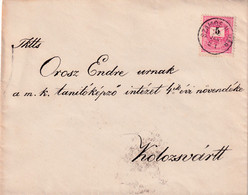 Tktts
Orosz Endre urnak
a m. k. tanitóképző intézet 4ik évi növendéke
Kolozsvártt
5